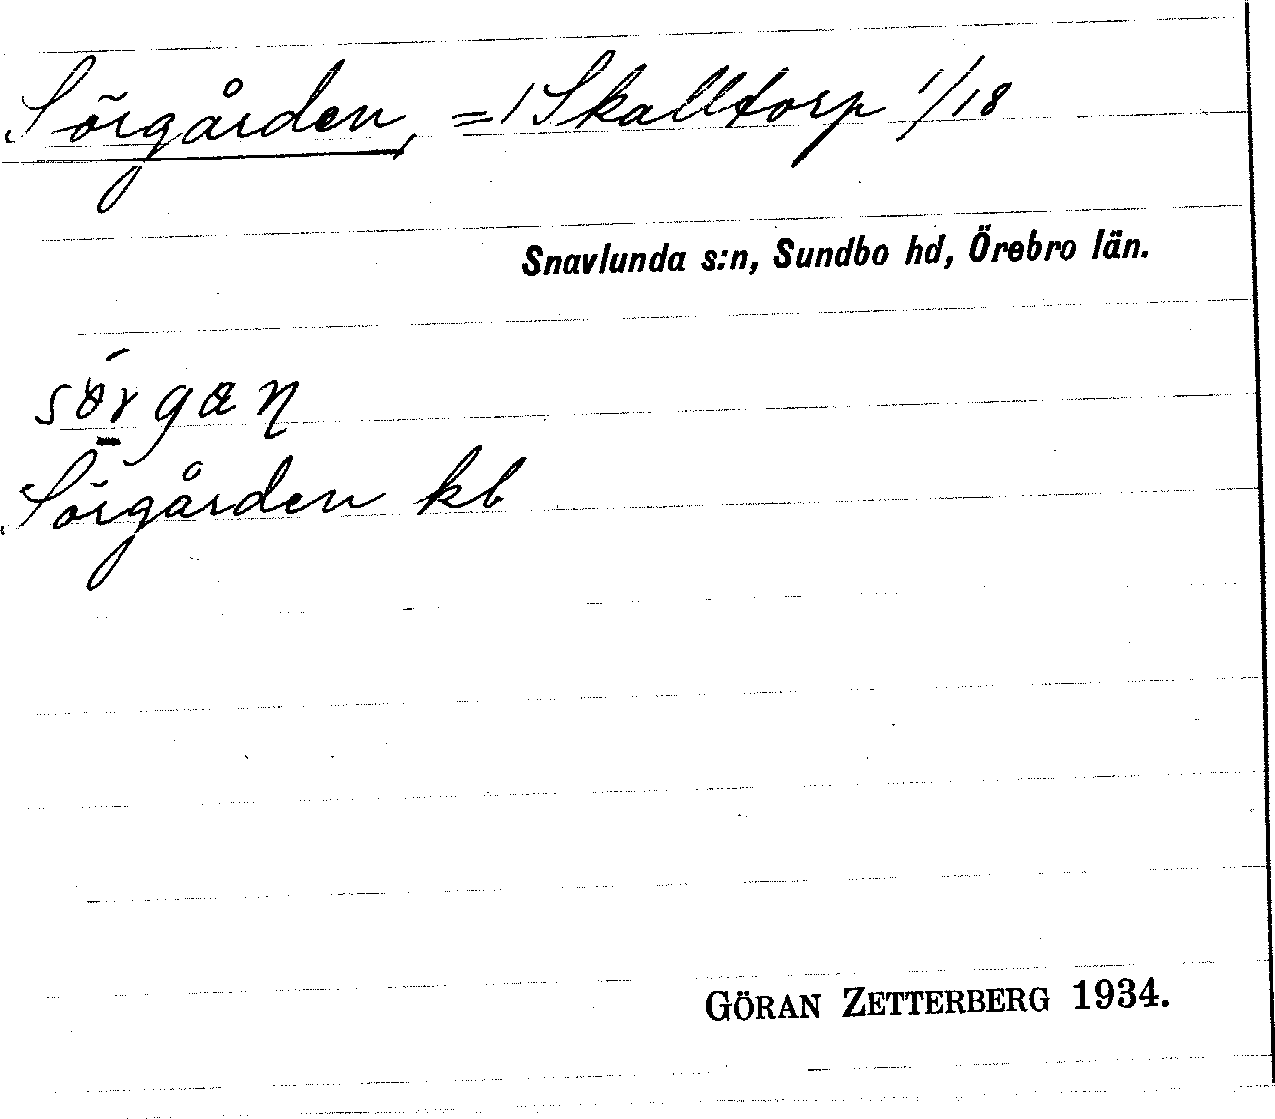 Sörgården, = Skalltorp 1/18
Snavlunda s:n, Sundbo hd, Örebro län.
Sörgården kb
GÖRAN ZETTERBERG 1934.